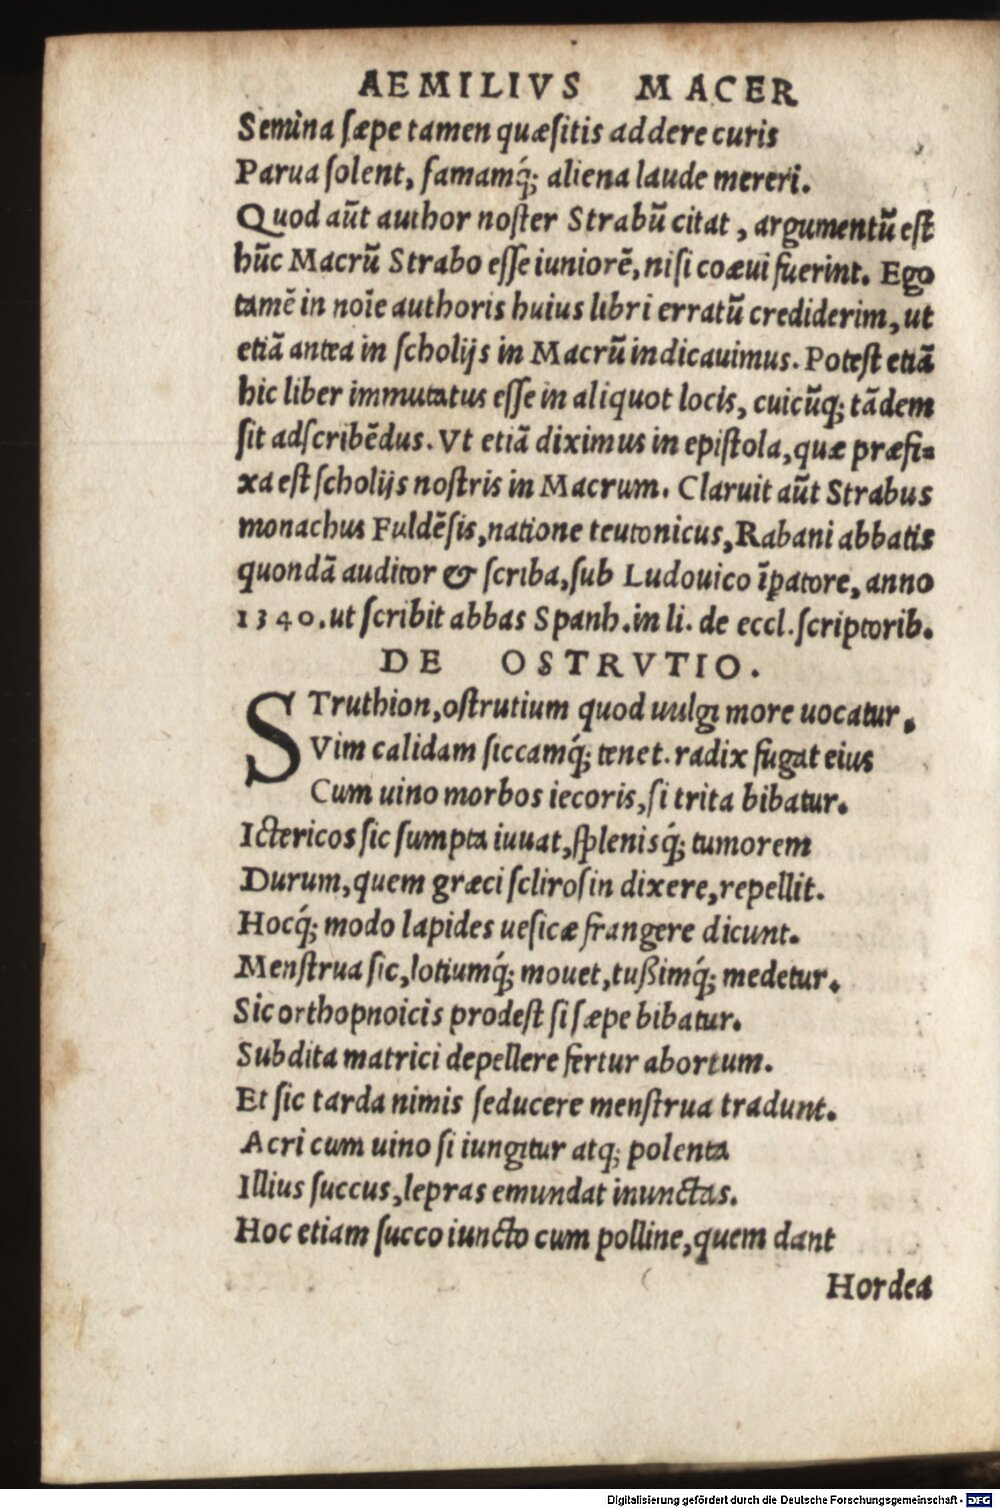 AEMILIVS MACER
Semina sæpe tamen quæsitis addere curis
Parua solent, famamq́; aliena laude mereri.
Quod aũt author noster Strabũ citat, argumentũ est
hũc Macrũ Strabo esse iuniorẽ, nisi coæui fuerint. Ego
tamẽ in noĩe authoris huius libri erratũ crediderim, ut
etiã antea in scholijs in Macrũ indicauimus. Potest etiã
hic liber immutatus esse in aliquot locis, cuicũq; tãdem
sit adscribẽdus. Vt etiã diximus in epistola, quæ præfi=
xa est scholijs nostris in Macrum. Claruit aũt Strabus
monachus Fuldẽsis, natione teutonicus, Rabani abbatis
quondã auditor & scriba, sub Ludouico ĩpatore, anno
1340. ut scribit abbas Spanh. in li. de eccl. scriptorib.
DE OSTRVTIO.
STruthion, ostrutium quod uulgi more uocatur,
Vim calidam siccamq́; tenet. radix fugat eius
Cum uino morbos iecoris, si trita bibatur.
Ictericos sic sumpta iuuat, splenisq́; tumorem
Durum, quem græci sclirosin dixere, repellit.
Hocq́; modo lapides uesicæ frangere dicunt.
Menstrua sic, lotiumq́; mouet, tußimq́; medetur.
Sic orthopnoicis prodest si sæpe bibatur.
Subdita matrici depellere fertur abortum.
Et sic tarda nimis seducere menstrua tradunt.
Acri cum uino si iungitur atq; polenta
Illius succus, lepras emundat inunctas.
Hoc etiam succo iuncto cum polline, quem dant
Hordea
Digitalisierung gefördert durch die Deutsche Forschungsgemeinschaft - DFG